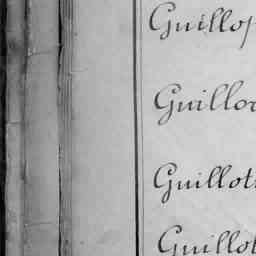 Guillop
Guillou
Guillot
Guillot